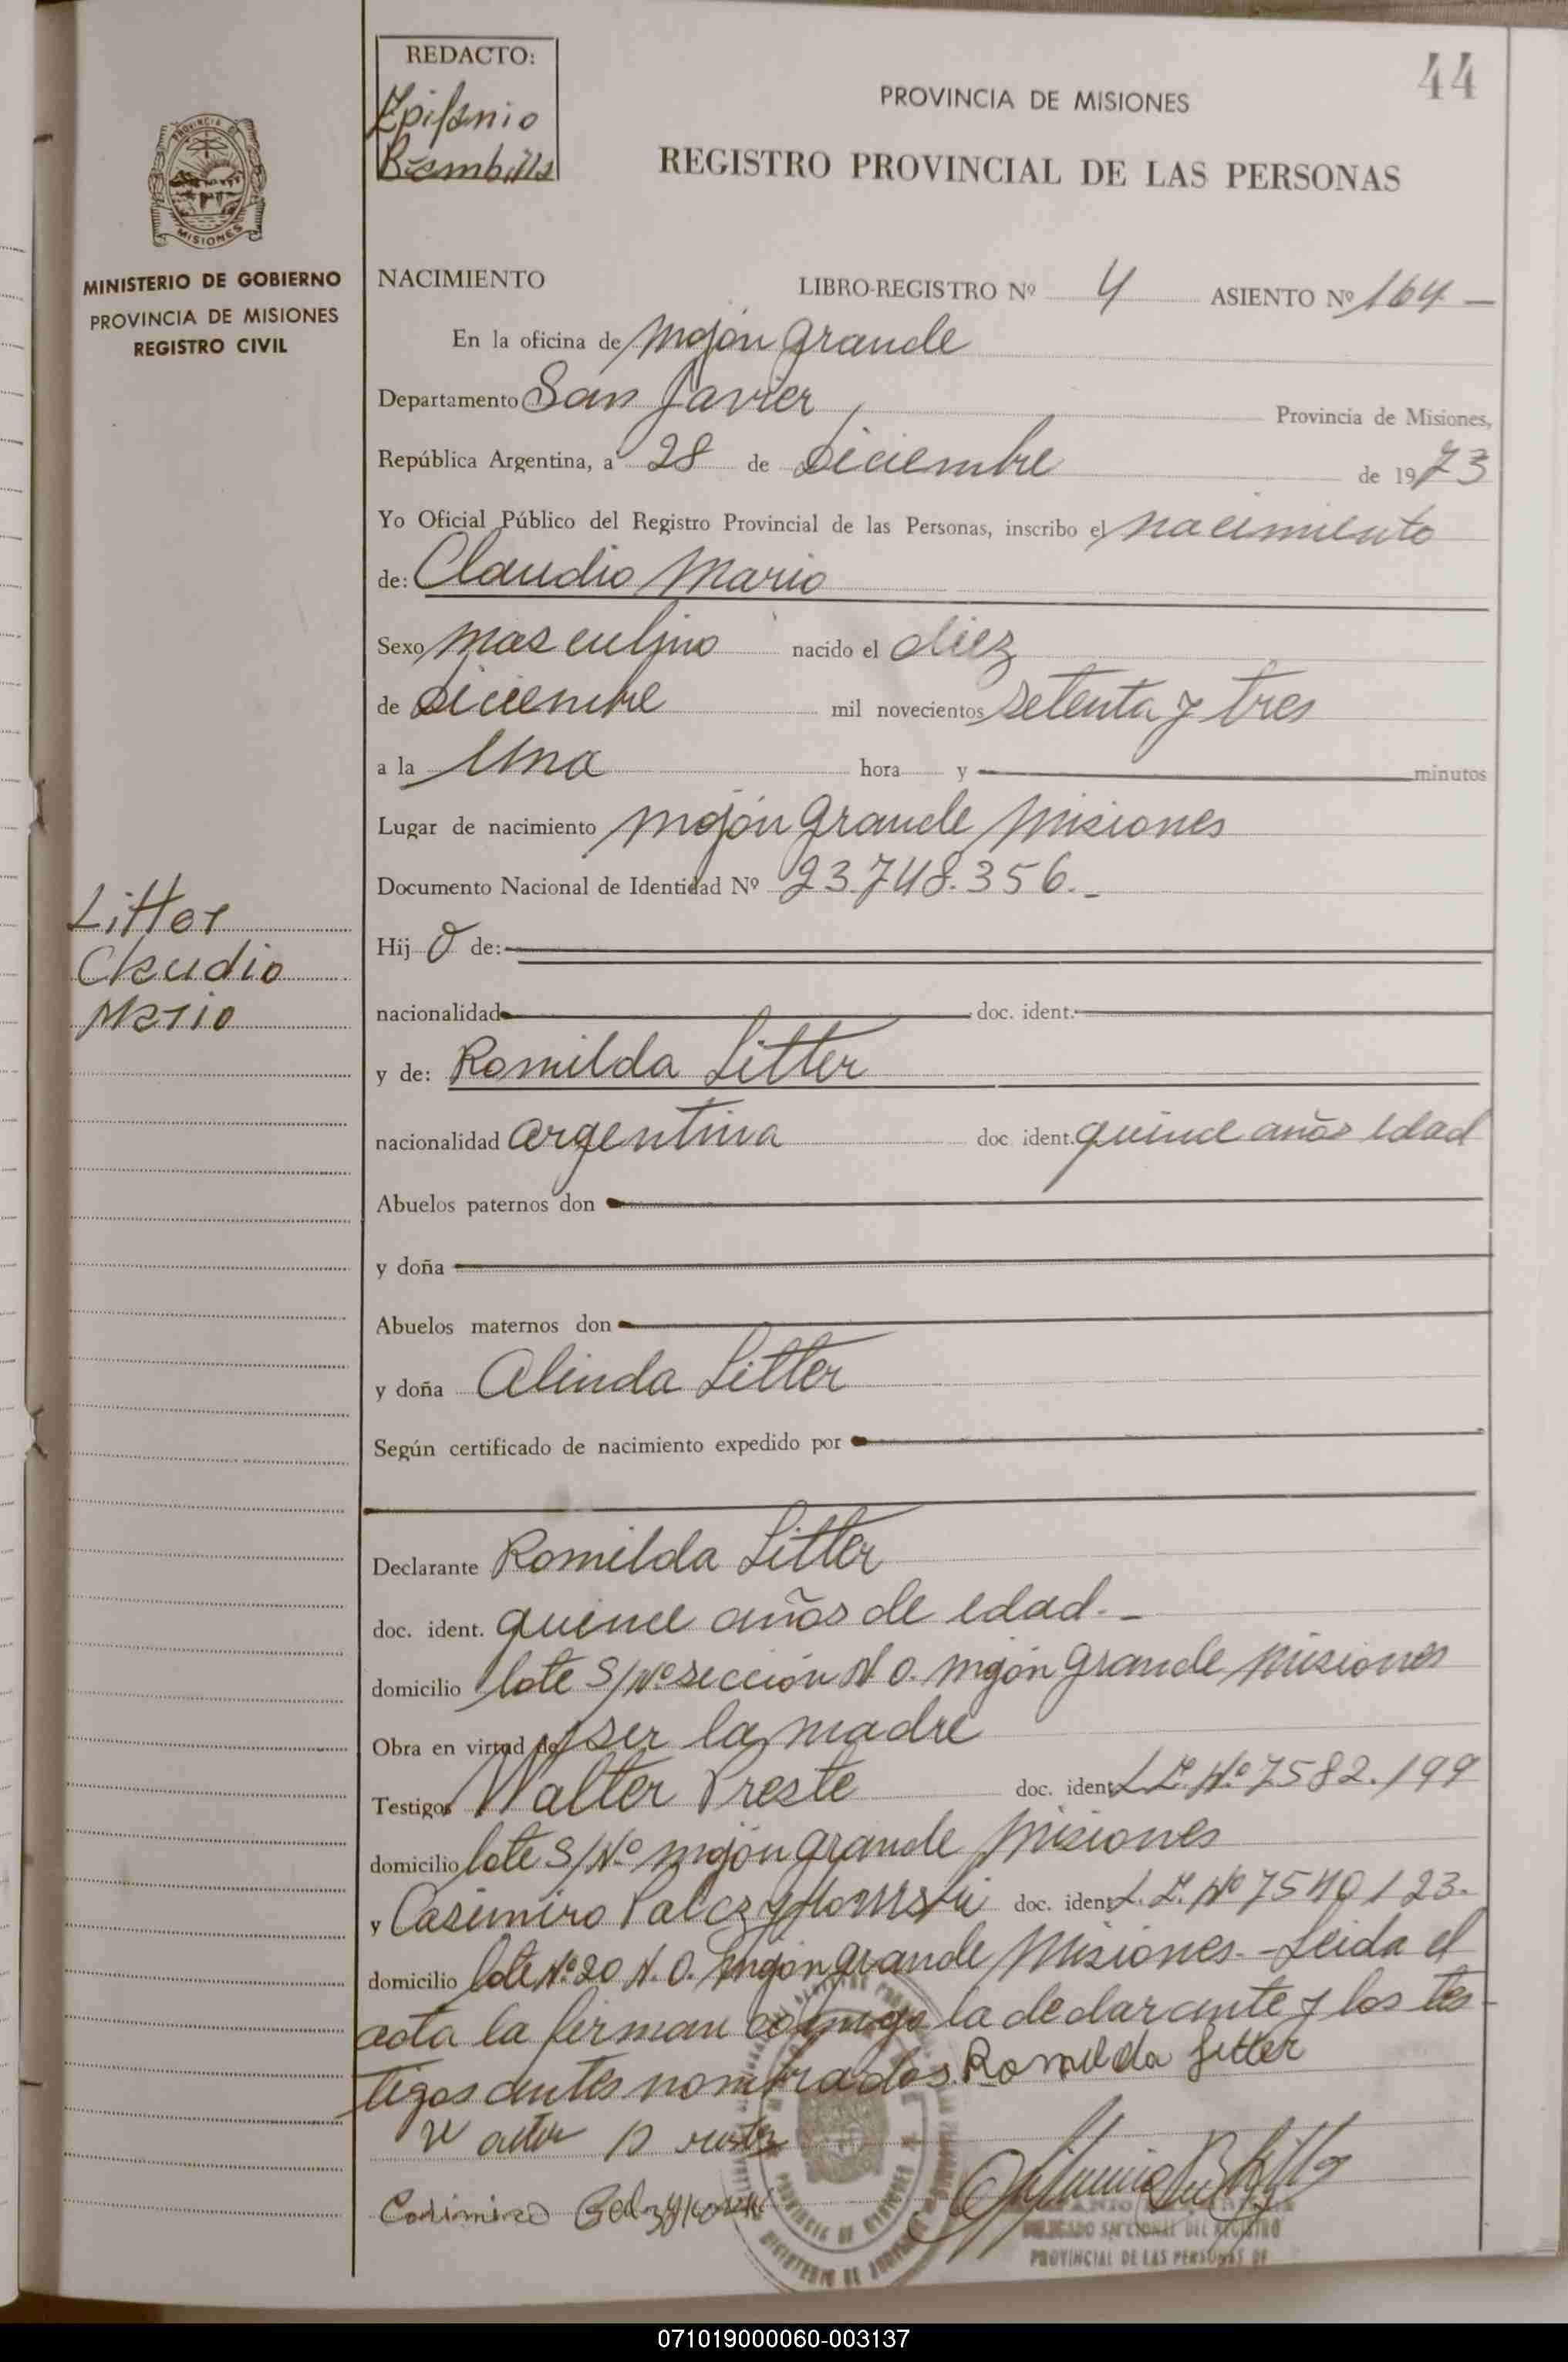 REDACTO:
Epifanio
Brambilla
44
PROVINCIA DE MISIONES
REGISTRO PROVINCIAL DE LAS PERSONAS
PROVINCIA DE
MISIONES
MINISTERIO DE GOBIERNO
PROVINCIA DE MISIONES
REGISTRO CIVIL
NACIMIENTO LIBRO-REGISTRO Nº 4 ASIENTO Nº 164
En la oficina de Mojón Grande
Departamento San Javier, Provincia de Misiones,
República Argentina, a 28 de Diciembre de 1973
Yo Oficial Público del Registro Provincial de las Personas, inscribo el nacimiento
de: Claudio Mario
Sexo masculino nacido el diez
de diciembre mil novecientos setenta y tres
a la Una hora y minutos
Lugar de nacimiento Mojón Grande Misiones
Documento Nacional de Identidad Nº 23.748.356.-
Litter
Claudio
Mario
Hij o de:
nacionalidad doc. ident.
y de: Romilda Litter
nacionalidad argentina doc ident. quince años edad
Abuelos paternos don
y doña
Abuelos maternos don
y doña Alinda Litter
Según certificado de nacimiento expedido por
Declarante Romilda Litter
doc. ident. quince años de edad.-
domicilio lote S/Nº sección N O. Mojón Grande Misiones
Obra en virtud de ser la madre
Testigos Walter Preste doc. ident L.E. Nº 7582.199
domicilio lote S/Nº Mojón Grande Misiones
y Casimiro doc. ident L.E. Nº 7540123.
domicilio lote Nº 20 N.O. Mojón Grande Misiones.- Leida el
acta la firman conmigo la declarante y los tes-
tigos antes nombrados. Romilda Litter
Casimiro
DELEGADO SECCIONAL DEL REGISTRO
PROVINCIAL DE LAS PERSONAS DE
071019000060-003137